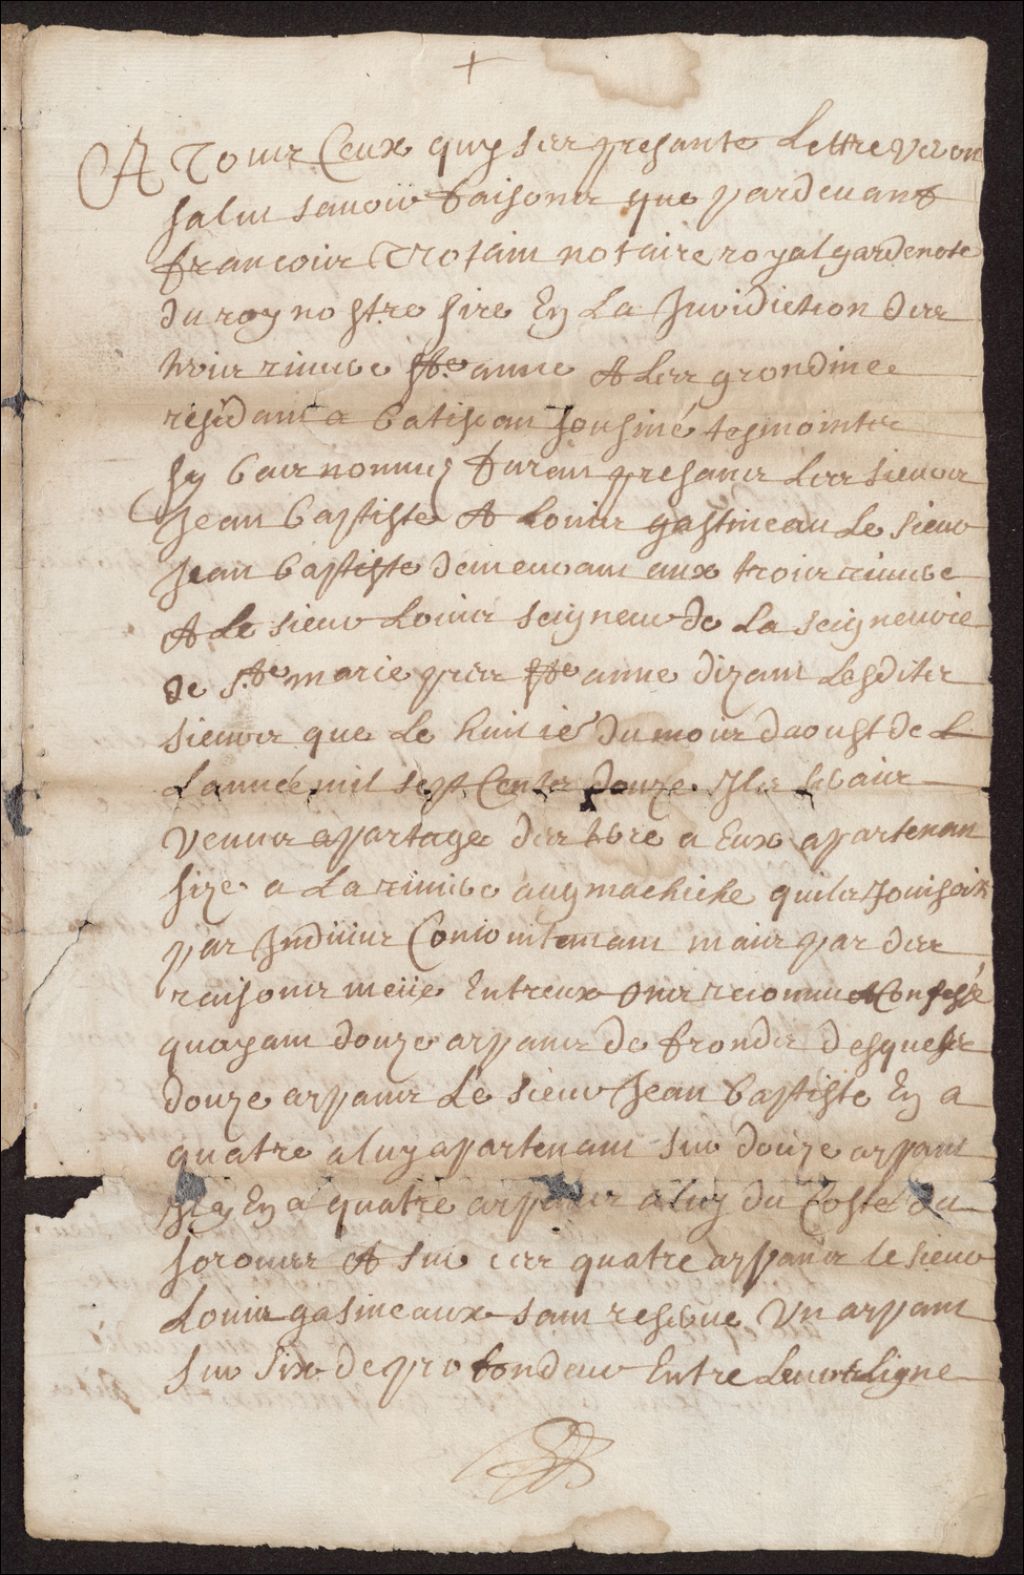 A Tous Ceux quy ses presante Lettre veron
salut savoir faisons que pardevant
francois Trotain notaire royal gardenote
du roy nostre sire En La Juridiction des
trois riviere Ste anne Et les grondinee
residant a batiscan sousiné tesmointes
sy bas nommez furent presans Les sieurs
Jean baptiste Et Louis gastineau Le sieur
Jean baptiste demeurant aux trois riviere
Et Le sieur Louis seigneur de La seigneurie
de Ste marie pres Ste anne dizant Lesdites
sieurs que Le huitié du mois daoust de L
Lannée mil sept Cents douze Ils
venus a partage des tere a Eux apartenan
size a La riviere a machiche quils Jouiset
par Indivis Conjointemant mais par des
raisons meüe Entreux ons reconnu Et Confessé
quoyant douze arpans de fronds desquels
douze arpans Le sieur Jean baptiste En a
quatre a luy apartenant sur douze arpant
Il y En a quatre arpans a luy du Coste du
sorouest Et sur ces quatre arpans le sieur
Louis gasineaux sant reserve Un arpant
sur six de profondeur Entre Leur Ligne